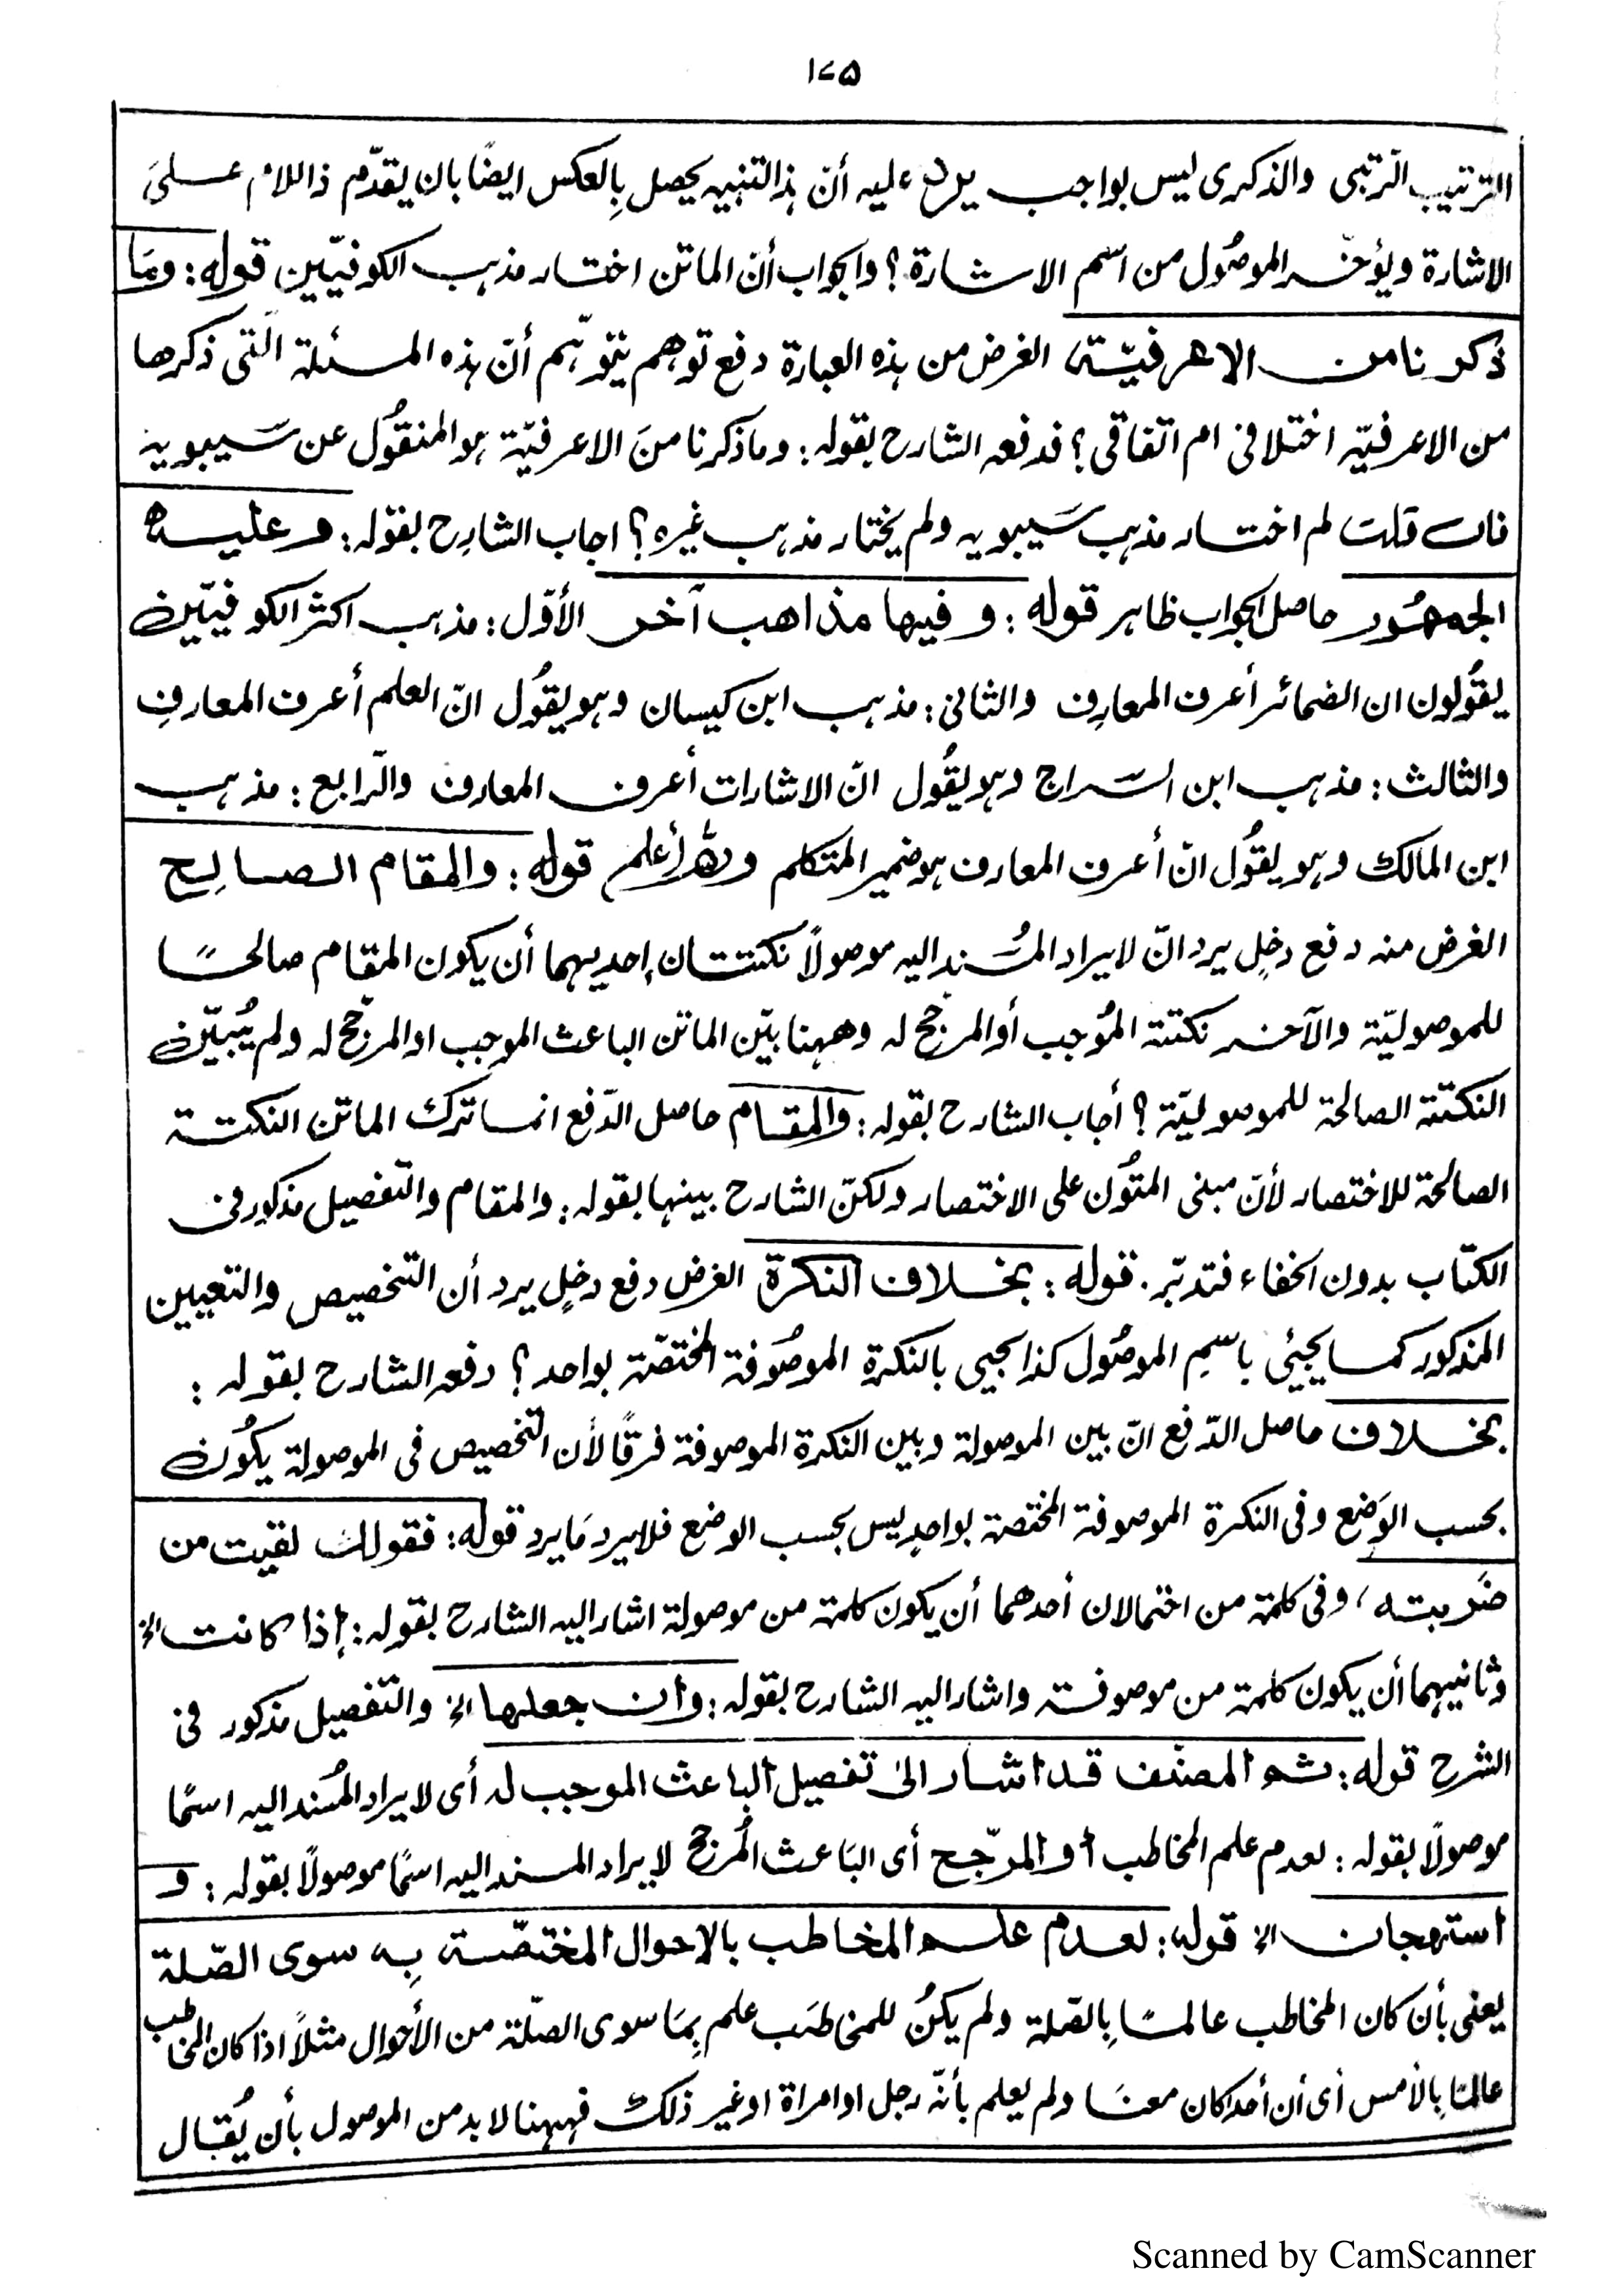 ١٧٥
الترتيب الرّتبى والذكرى ليس بواجب يرد عليه أنّ هذا التنبيه يحصل بِالعكس ايضًا بان يقدّم ذا اللام على
الاشارة ويؤخّر الموصُول من اسم الاشارة؟ والجواب أنّ الماتن اختار مذهب الكوفيّين قوله: ومَا
ذكرنا من الاعرفيّة الغرض من هذه العبارة دفع توهم يتوهّم أنّ هذه المسئلة الّتى ذكرها
من الاعرفيّه اختلافى ام اتفاقى؟ فدفعه الشارح بقوله: وما ذكرنا منَ الاعرفيّة هو المنقُول عن سَيبويه
فان قلت لم اختار مذهب سَيبويه ولم يختار مذهب غيره؟ اجاب الشارح بقوله: وعليه
الجمهُور حاصل الجواب ظاهر قوله: وفيها مذاهب آخر الأوّل: مذهب اكثر الكوفيّين
يقُولون ان الضمائر أعرف المعارف والثانى: مذهب ابن كيسان وهو يقُول انّ العلم أعرف المعارفِ
والثالث: مذهب ابن السّراج وهو يقُول انّ الاشارات أعرف المعارف والرّابع: مذهب
ابن المالك وهو يقُول انّ أعرف المعارف هو ضمير المتكلم والله أعلم قوله: والمقام الصالِح
الغرض منه دفع دخلٍ يرد انّ لايراد المُسند اليه موصولًا نكتتان احديهما أن يكون المقام صالحًا
للموصوليّة والآخر نكتة المُوجب أو المرجّح له وههنا بيّن الماتن الباعث الموجب او المرجّح له ولم يُبيّن
النكتة الصالحة للموصوليّة؟ أجاب الشارح بقوله: والمقام حاصل الدّفع انما ترك الماتن النكتة
الصالحة للاختصار لأنّ مبنى المتُون على الاختصار ولكنّ الشارح بينها بقوله: والمقام والتفصيل مذكور فى
الكتاب بدون الخفاء فتدبّر. قوله: بخلاف النكرة الغرض دفع دخلٍ يرد أن التخصيص والتعيين
المذكور كما يجيئى باسمِ الموصُول كذا يجيى بالنكرة الموصُوفة المختصّة بواحد؟ دفعه الشارح بقوله:
بخلاف حاصل الدّفع انّ بين الموصولة وبين النكرة الموصوفة فرقًا لأن التخصيص فى الموصولة يكُون
بحسب الوَضع وفى النكرة الموصوفة المختصة بواحدٍ ليس بحسب الوضع فلا يرد مَا يرد قوله: فقولك لقيت من
ضَربته، وفى كلمة من احتمالان أحدهما أن يكون كلمة من موصولة اشار اليه الشارح بقوله: إذا كانت الخ
وثانيهما أن يكون كلمة من موصوفة واشار اليه الشارح بقوله: وان جعلها الخ والتفصيل مذكور فى
الشرح قوله: ثم المصنّف قد اشار الىٰ تفصيل الباعث الموجب له أى لايراد المُسند اليه اسمًا
موصولًا بقوله: لعدم علم المخاطب أو المرجّح أى البَاعث المُرجّح لايراد المسند اليه اسمًا موصولًا بقوله: و
استهجان الخ قوله: لعدم علم المخاطب بالاحوال المختصّة بِه سوى الصّلة
يعنى بأن كان المخاطب عالمًا بِالصّلة ولم يكنُ للمخاطَب علم بِمَا سوى الصّلة من الأحوال مثلاً اذا كان المخاطب
عالمًا بِالأمس أى أن أحدًا كان معنَا ولم يعلم بأنّه رجل او امراة او غير ذلك فههنا لا بد من الموصول بأن يُقال
Scanned by CamScanner